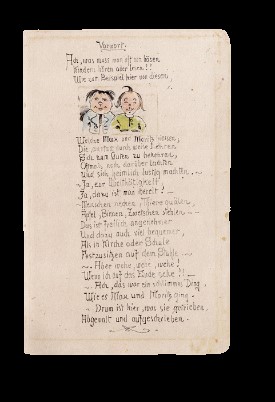 Vorwort.
Ach, was muss man oft von bösen
Kindern hören oder lesen!!
Wie zum Beispiel hier von diesen,
Welche Max und Moritz hiessen,
Die, anstatt durch weise Lehren
Sich zum Guten zu bekehren,
Oftmals noch darüber lachten
Und sich heimlich lustig machten. –
– Ja, zur Übelthätigkeit
Ja, dazu ist man bereit! –
– Menschen necken, Thiere quälen,
Äpfel, Birnen, Zwetschen stehlen – –
Das ist freilich angenehmer
Und dazu auch viel bequemer,
Als in Kirche oder Schule
Festzusitzen auf dem Stuhle –
– Aber wehe, wehe, wehe!
Wenn ich auf das Ende sehe!! –
– Ach, das war ein schlimmes Ding,
Wie es Max und Moritz ging.
– Drum ist hier, was sie getrieben,
Abgemalt und aufgeschrieben.